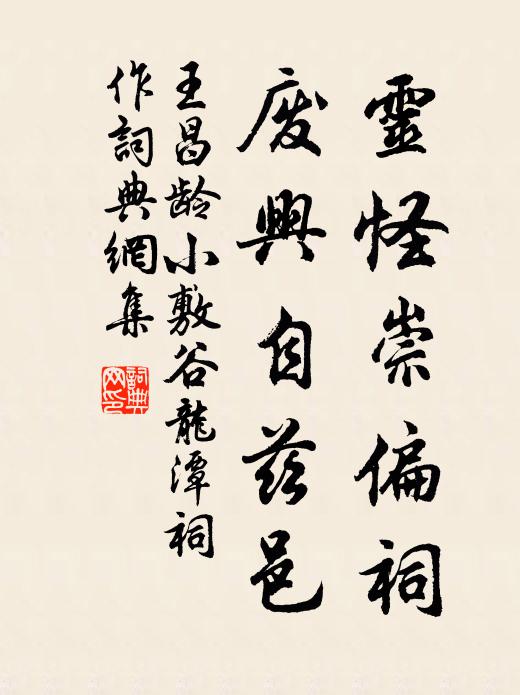 靈怪崇偏祠
廢興自茲邑
王昌龄小敷谷龍潭祠
作詞典網集
詞典
网印